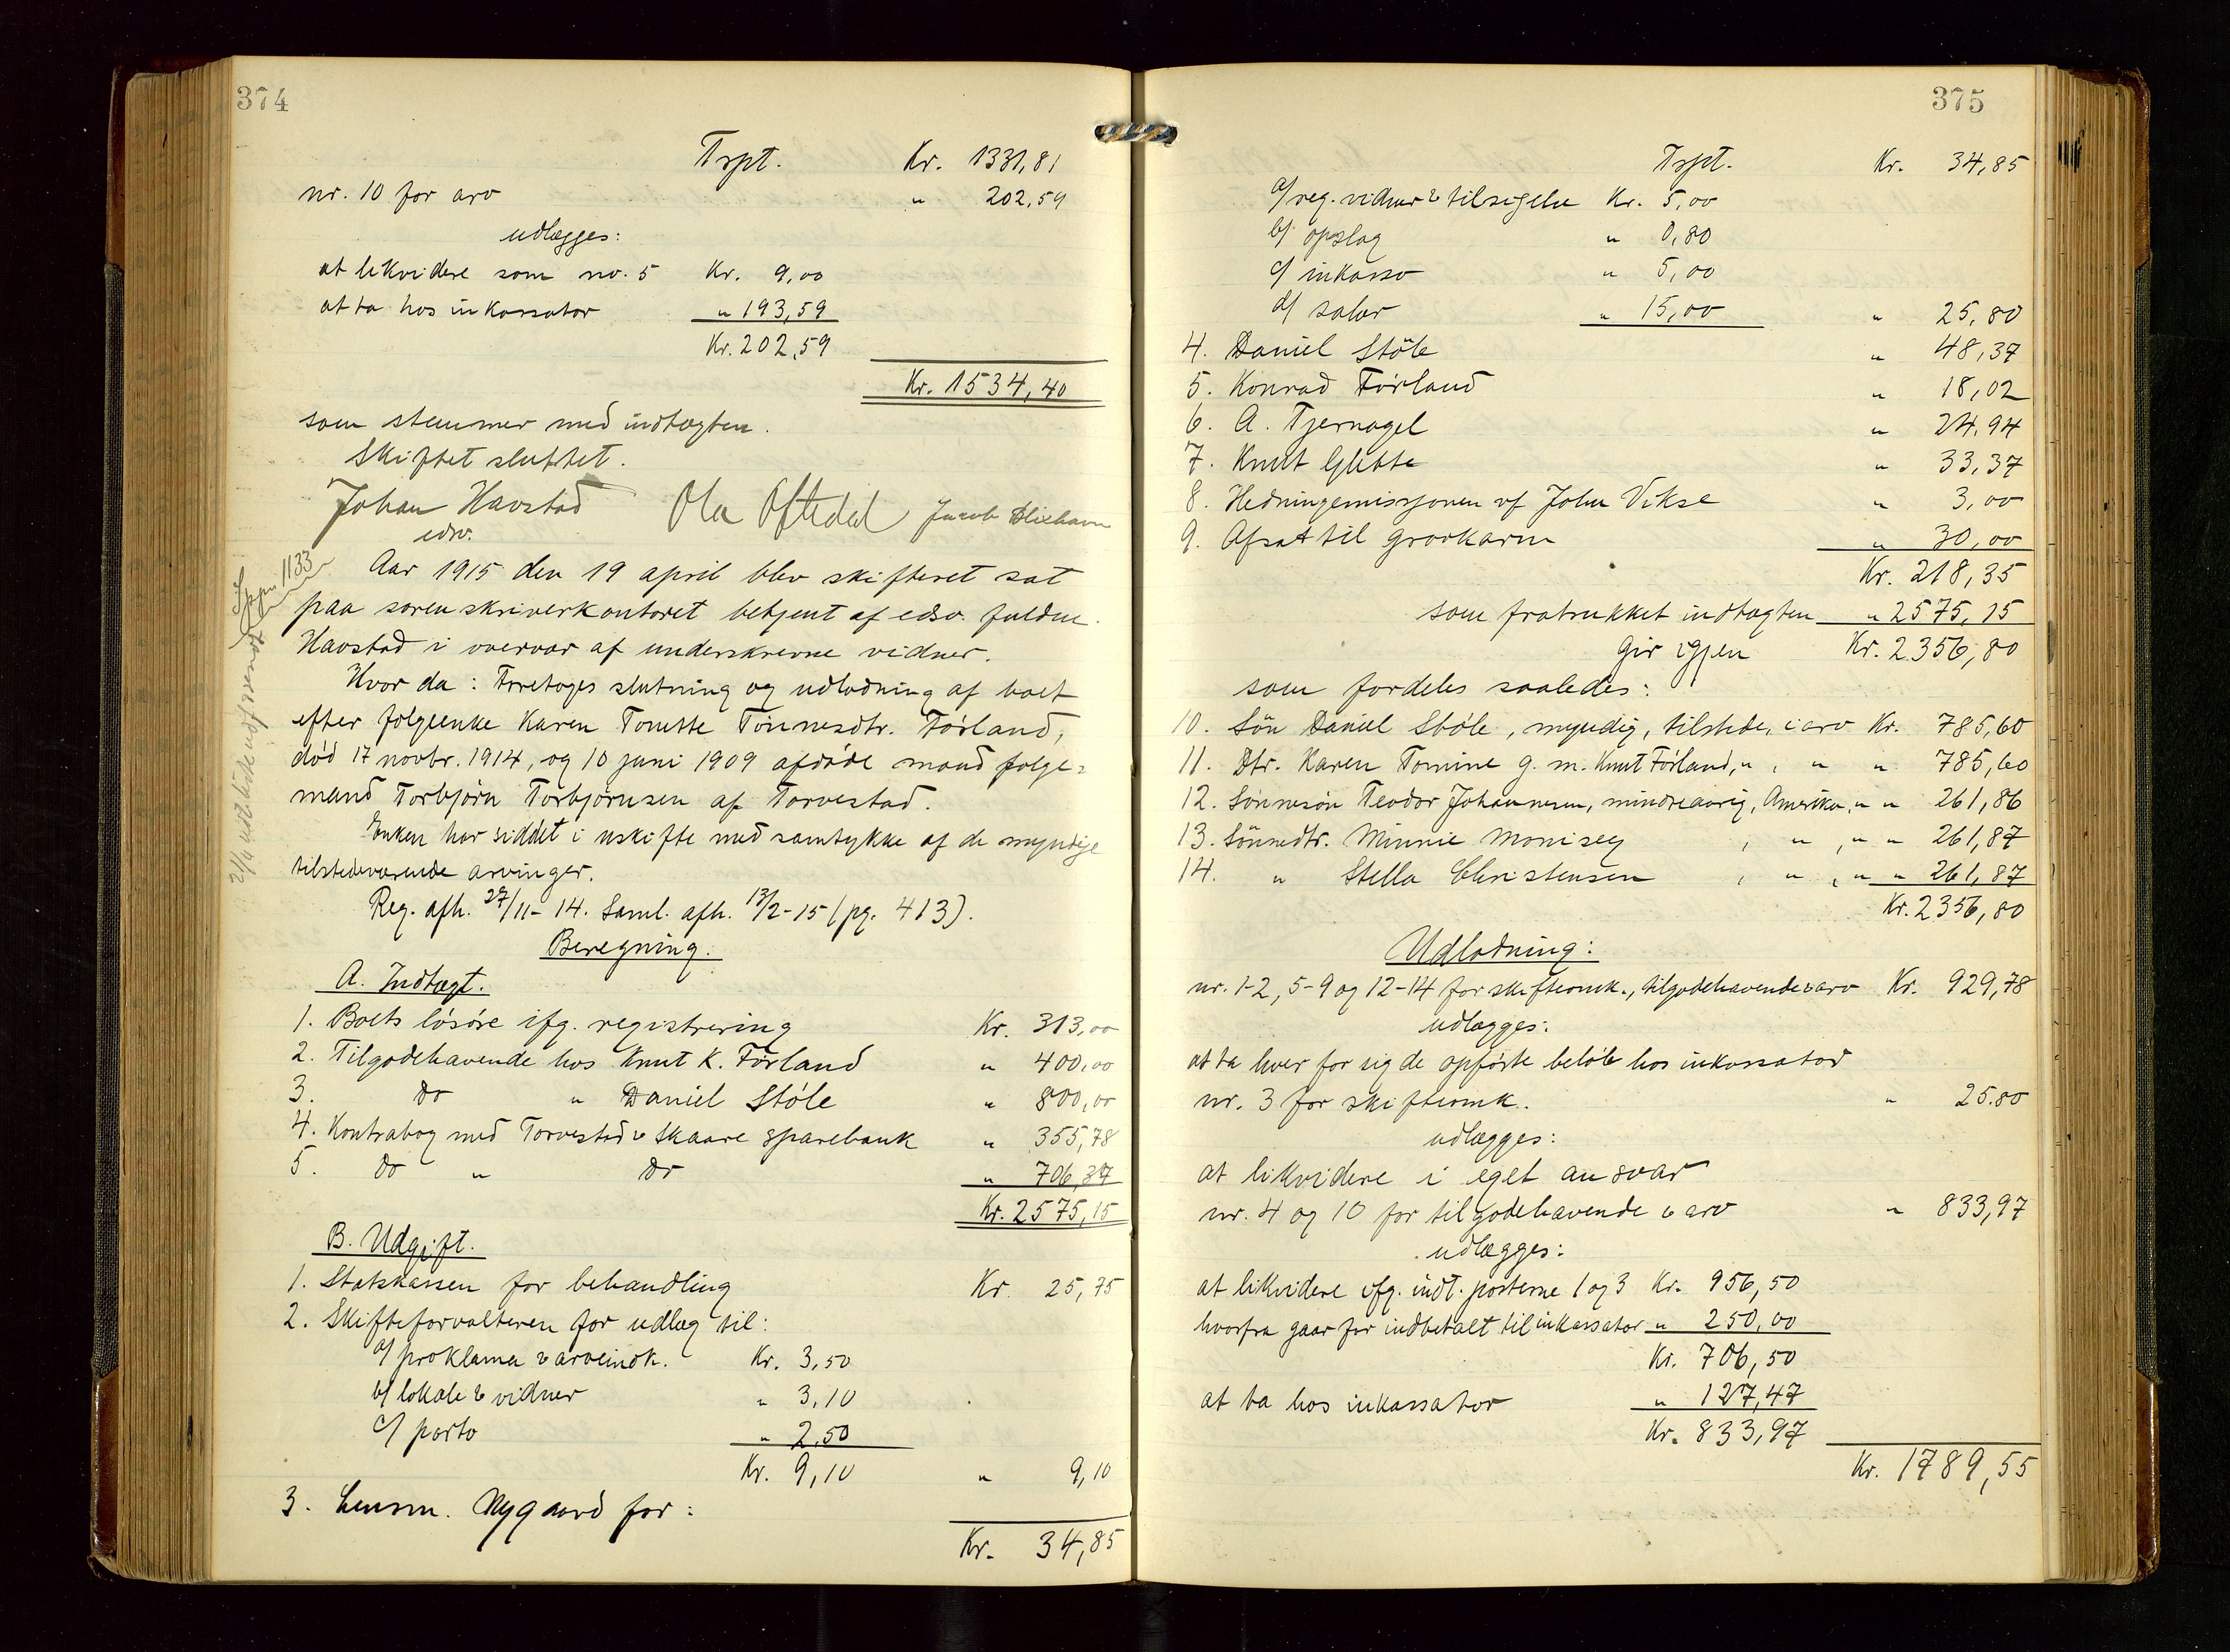 374
Trpt. Kr. 1331,81
nr. 10 for arv " 202,59
udlægges:
at likvidere som nr. 5 Kr. 9,00
at ta hos inkassator " 193,59
Kr. 202,59
Kr. 1534,40
som stemmer med indtægten.
Skiftet sluttet.
Johan Havstad Ola Oftedal Jacob
edsv.
1133
Aar 1915 den 19 april blev skifteret sat
paa sorenskriverkontoret betjent af edsv. fuldm.
Havstad i overvær af underskrevne vidner.
Hvor da: Foretoges slutning og udlodning af boet
efter følgeenke Karen Tonette Tönnesdtr. Förland,
död 17 novbr. 1914, og 10 juni 1909 afdöde mand følge-
mand Torbjörn Torbjörnsen af Torvestad.
Enken har siddet i uskifte med samtykke af de myndige
tilstedeværende arvinger.
Reg. afh. 27/11-14. Saml. afh. 13/2-15 (pg. 413).
Beregning.
A. Indtægt.
1. Boets lösöre ifg. registrering Kr. 313,00
2. Tilgodehavende hos Knut K. Förland " 400,00
3. do " Daniel Stöle " 800,00
4. Kontrabog med Torvestad & Skaare sparebank " 355,78
5. do " do " 706,37
Kr. 2575,15
B. Udgift.
1. Statskassen for behandling Kr. 25,75
2. Skifteforvalteren for udlæg til:
a/ proklama & arveindk. Kr. 3,50
b/ lokale & vidner " 3,10
c/ porto " 2,50
Kr. 9,10 " 9,10
3. Lensm. Nygaard for:
Kr. 34,85
375
Trpt. Kr. 34,85
a/ reg. vidner & tilsigelse Kr. 5,00
b/ opslag " 0,80
c/ inkasso " 5,00
d/ salær " 15,00 " 25,80
4. Daniel Stöle " 48,37
5. Konrad Förland " 18,02
6. A. Tjernagel " 24,94
7. Knut Glette " 33,37
8. Hedningemissjonen vf John Vikse " 3,00
9. Afsat til gravkarm " 30,00
Kr. 218,35
som fratrukket indtægten " 2575,15
Gir igjen Kr. 2356,80
som fordeles saaledes:
10. Sön Daniel Stöle, myndig, tilstede, i arv Kr. 785,60
11. Dtr. Karen Tomine g. m. Knut Förland, " , " " 785,60
12. Sönnesön Teodor Johannesen, mindreaarig, Amerika, " " 261,86
13. Sönnedtr. Minnie Monisey , " , " " 261,87
14. " Stella Christensen , " , " " 261,87
Kr. 2356,80
Udlodning:
nr. 1-2, 5-9 og 12-14 for skifteomk., tilgodehavende & arv Kr. 929,78
udlægges:
at ta hver for sig de opförte belöb hos inkassator
nr. 3 for skifteomk. " 25.80
udlægges:
at likvidere i eget ansvar
nr. 4 og 10 for tilgodehavende & arv " 833,97
udlægges:
at likvidere ifg. indt. posterne 1 og 3 Kr. 956,50
hvorfra gaar for indbetalt til inkassator " 250,00
Kr. 706,50
at ta hos inkassator " 127,47
Kr. 833,97
Kr. 1789,55